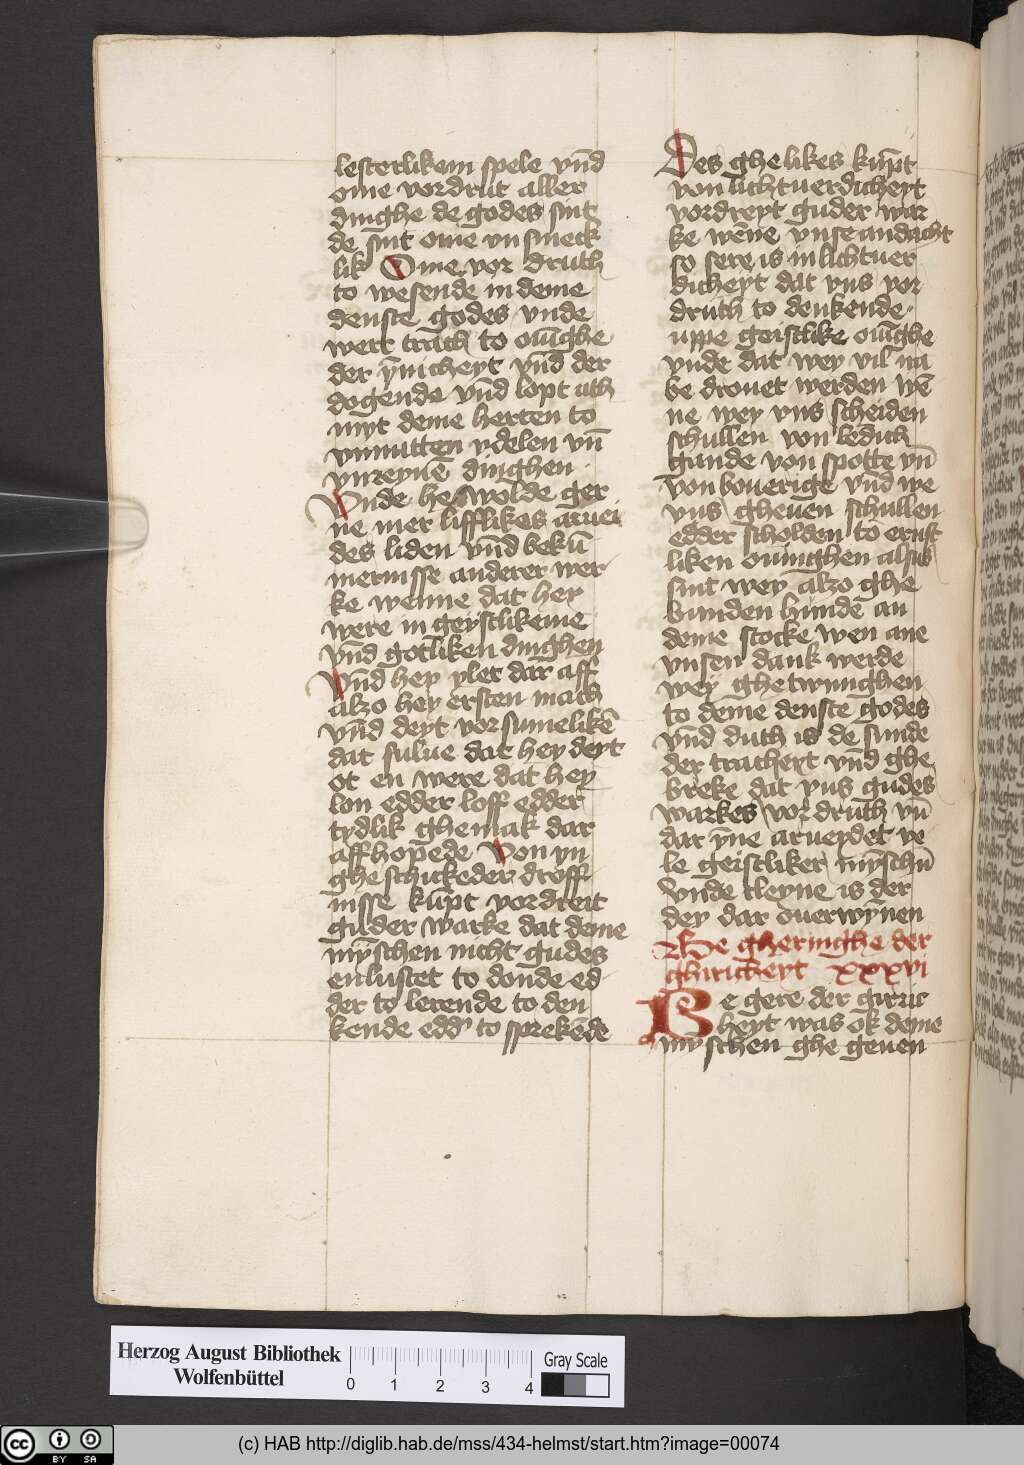 lesterlikem spele vn̄d
ome vordrut aller
dinghe de godes sint
de sint ome vn smeck
lik Ome vor druth
to wesende in deme
denste godes vnde
wert trach to ouīghe
der ȳnicheyt vn̄d der
dogende vn̄d lopt uth
myt deme herten to
vnnutten ydelen vn̄
vnreynē dinghen
Vnde he wolde ger
ne mer lifflikes aruei
des liden vn̄d bekū
mernisse anderer wer
ke wenne dat hey
were in geystlikeme
vn̄d gotliken dinghen
Vn̄d hey ylet dar aff
alzo hey ersten mach
vn̄d deyt vorsumelikē
dat sulue dat hey deyt
ot en were dat hey
lon edder loff edder
tydlik ghemak dar
aff hopede Von vn
gheschickeder droff
nisse kūpt vordreit
guder warke dat deme
mȳschen nicht gudes
enlustet to donde ed
der to lerende to den
kende edd' to sprekēde
Des ghelikes kūpt
von lichtuerdicheyt
vordreyt guder war
ke wēne vnse andacht
so sere is in lichtuer
dicheyt dat vns vor
druth to denkende
uppe geistlike ouīghe
vnde dat wey vil na
be drouet werden wē
ne wey vns scheiden
schullen von ledich
gande von spotte vn̄
von bouerige vn̄d we
vns gheuen schullen
edder scholden to ernst
liken ouinghen alsus
sint wey alzo ghe
bunden hunde an
deme stocke wen ane
vnsen dank werde
wey ghetwunghen
to deme denste godes
vn̄d duth is de sunde
der tracheyt vn̄d ghe
breke dat vns gudes
warkes vordruth vn̄
dar ȳne arueydet ve
le geistliker mȳschn̄
Vnde cleyne is der
dey dar ouerwynen
We gheringhe der
ghiricheyt xxxvi
Be gere der giric
heyt was ok deme
mȳschen ghe geuen
Herzog August Bibliothek
Wolfenbüttel
0 1 2 3 4
Gray Scale
cc BY SA
(c) HAB http://diglib.hab.de/mss/434-helmst/start.htm?image=00074